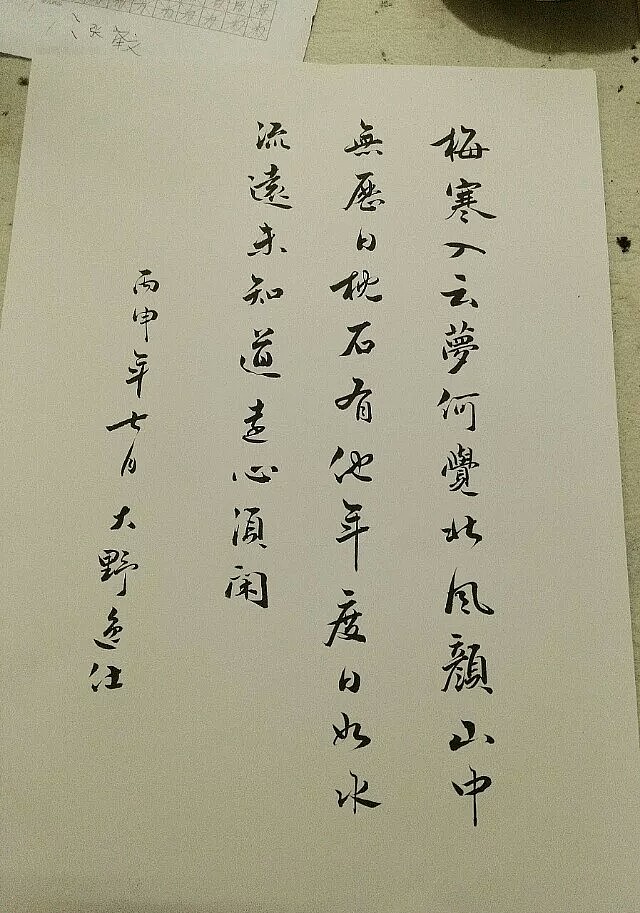 梅寒入云夢何覺北风顏山中
無歷日枕石有他年度日如水
流遠未知道走心須闲
丙申年七月大野逸仕